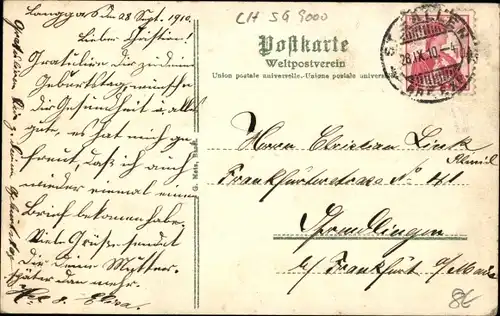 Langgass den 28 Sept. 1910.
Lieber Christian!
Gratuliere dir zu deinem
Geburtstag, wünsche
dir Gesundheit u. alles
gute, es hat mich ge-
freut, dass ich auch
wieder einmal einen
Brief bekommen habe.
Viele Grüsse sendet
Dir deine Mutter.
später dan mehr.
CH SG 9000
Postkarte
Weltpostverein
Union postale universelle.-Unione postale universale
G. Metz, Basel
ST. GALLEN
28.IX.10.-4
Herrn Christian Link
Frankfurterstrasse No 141
Sprendlingen
b/ Frankfurt a/Main
8€